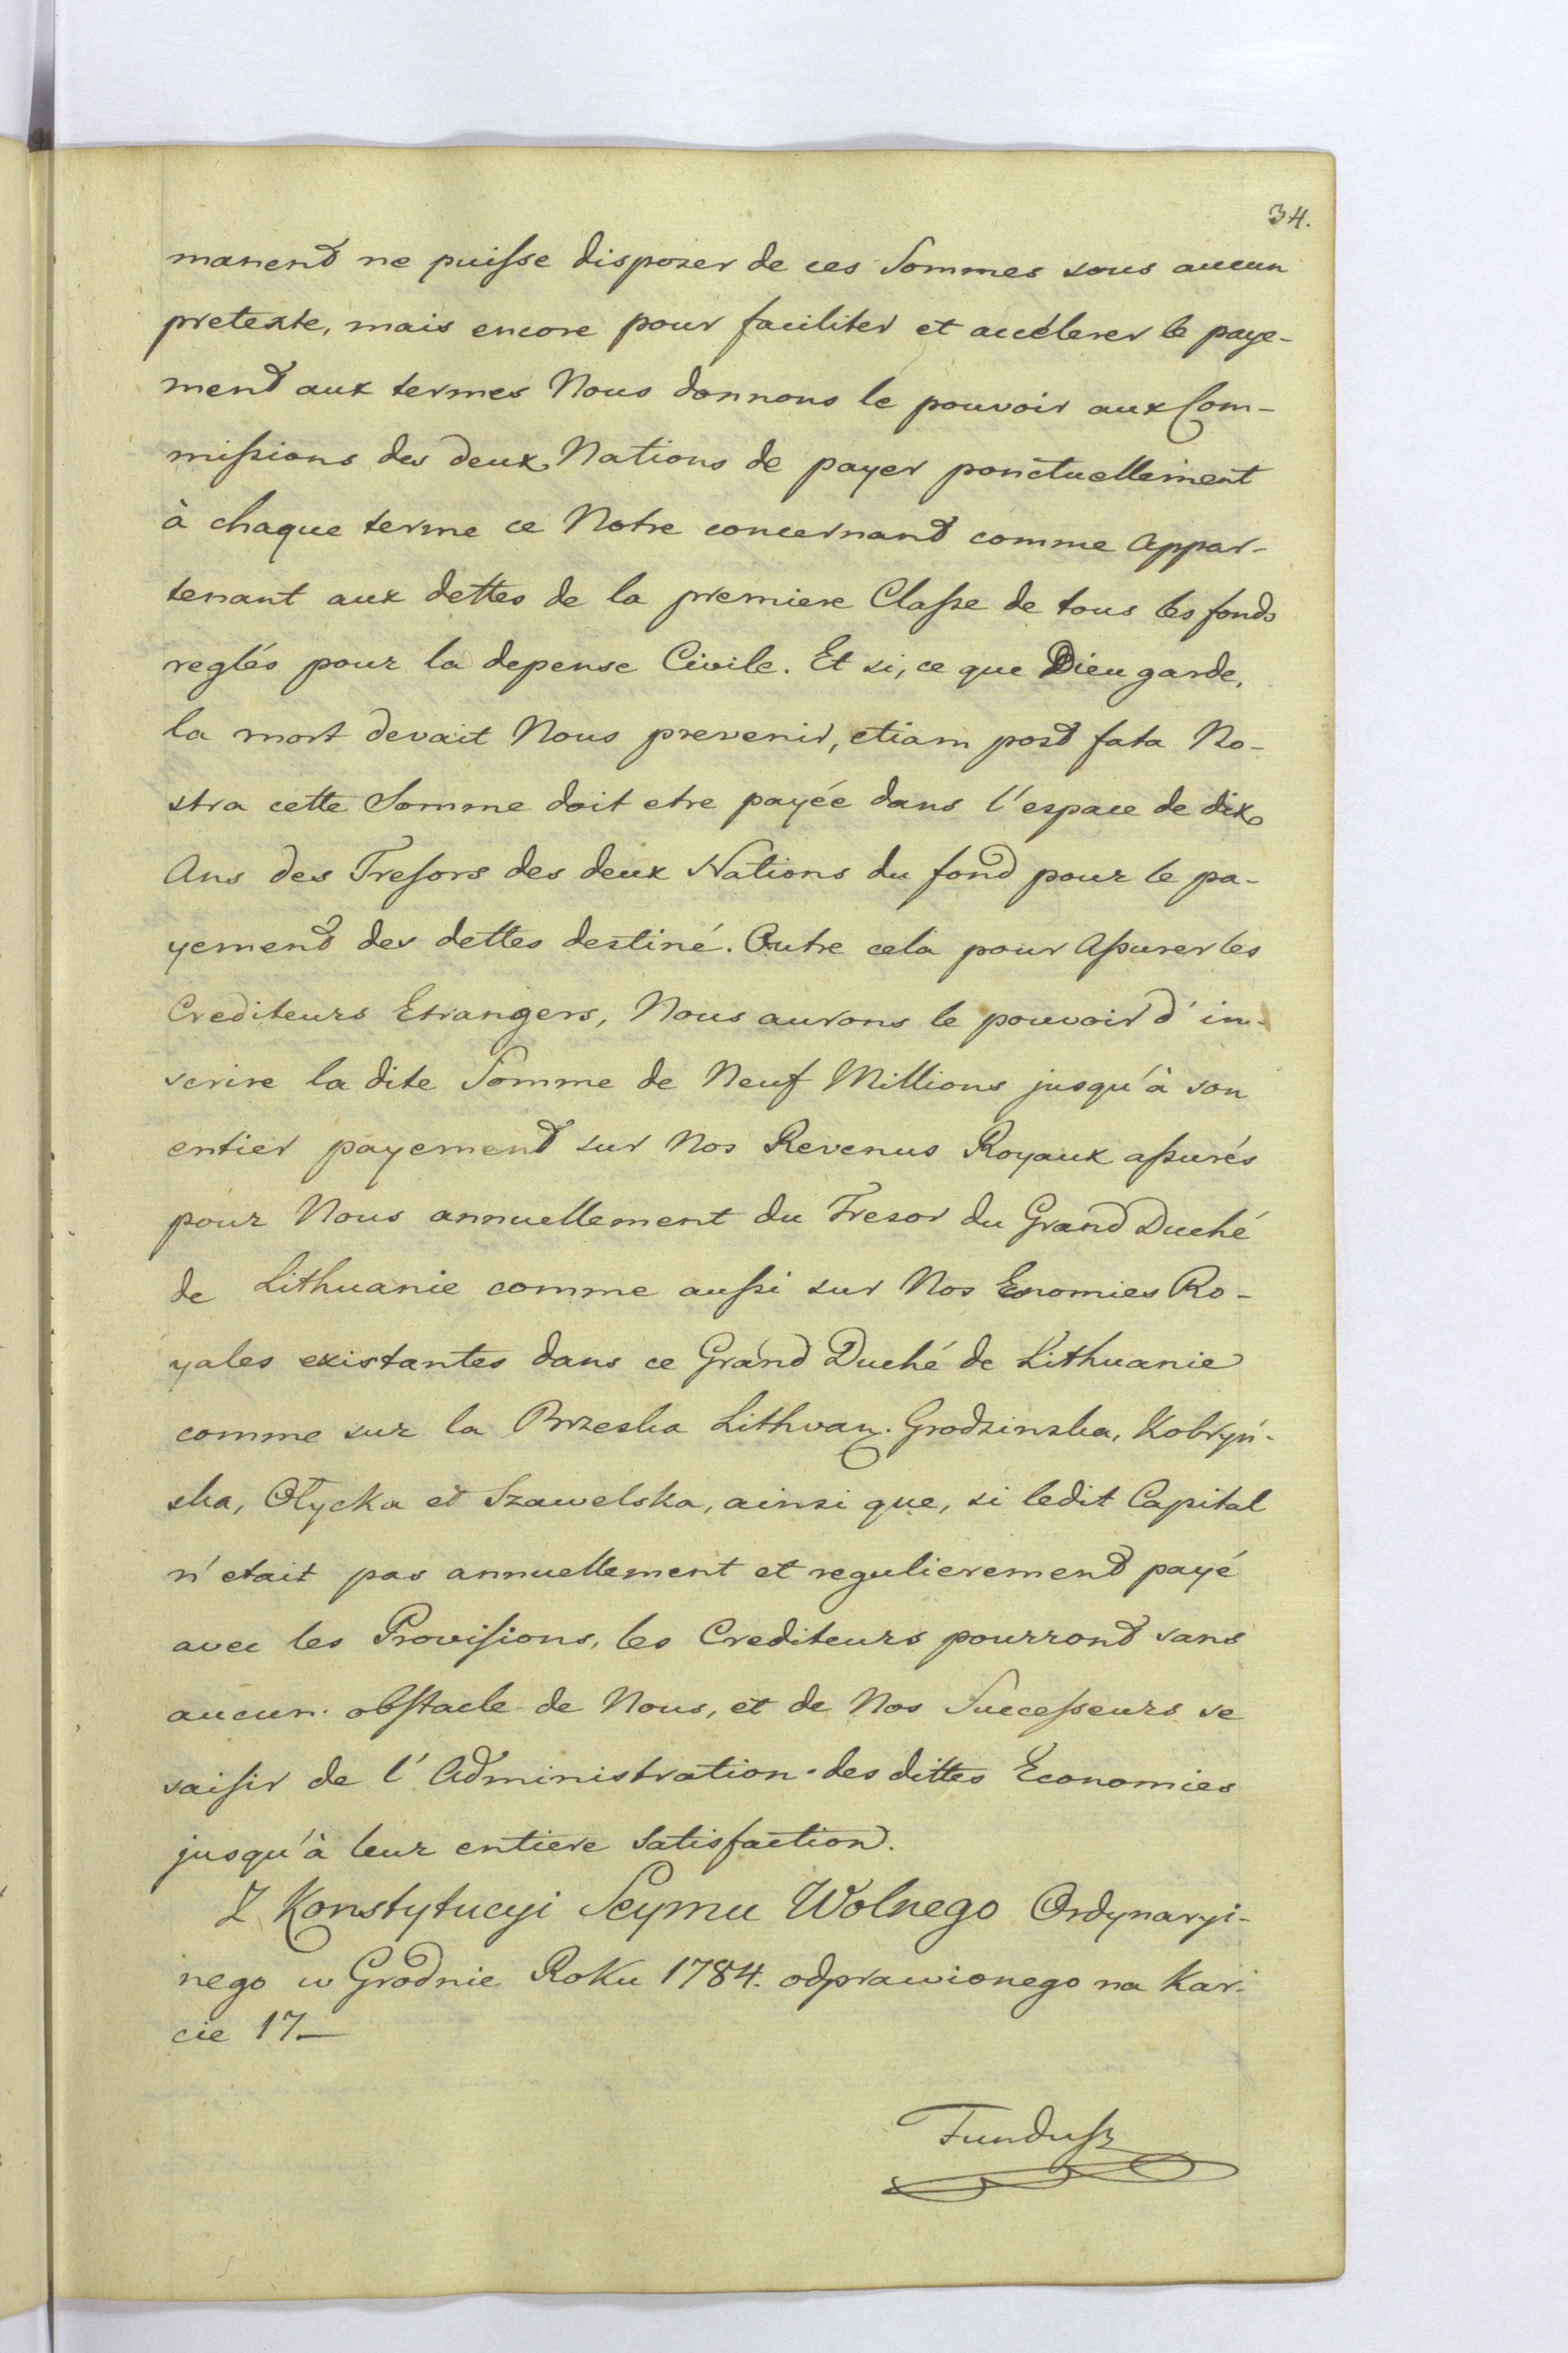 34.
manent ne puisse disposer de ces Sommes sous aucun
pretexte, mais encore pour faciliter et accélerer le paye-
ment aux termes Nous donnons le pouvoir aux Com-
missions des deux Nations de payer ponctuellement
à chaque terme ce Notre concernant comme Appar-
tenant aux dettes de la premiere Classe de tous les fonds
reglés pour la depense Civile. Et si, ce que Dieu garde,
la mort devait Nous prevenir, etiam post fata No-
stra cette Somme doit etre payée dans l'espace de dix
Ans des Tresors des deux Nations du fond pour le pa-
yement des dettes destiné. Outre cela pour Assurer les
Crediteurs Etrangers, Nous aurons le pouvoir d'in-
scrire la dite Somme de Neuf Millions jusqu'à son
entier payement sur Nos Revenus Royaux assurés
pour Nous annuellement du Tresor du Grand Duché
de Lithuanie comme aussi sur Nos Enomies Ro-
yales existantes dans ce Grand Duché de Lithuanie
comme sur la Brzeska Lithvan. Grodzinska, Kobryń-
ska, Ołycka et Szawelska, ainsi que, si ledit Capital
n'etait pas annuellement et regulierement payé
avec les Provisions, les Crediteurs pourront sans
aucun obstacle de Nous, et de Nos Successeurs se
saisir de l'Administration des dittes Economies
jusqu'à leur entiere Satisfaction.
Z Konstytucyi Seymu Wolnego Ordynaryi-
nego w Grodnie Roku 1784. odprawionego na Kar-
cie 17—
Fundusz